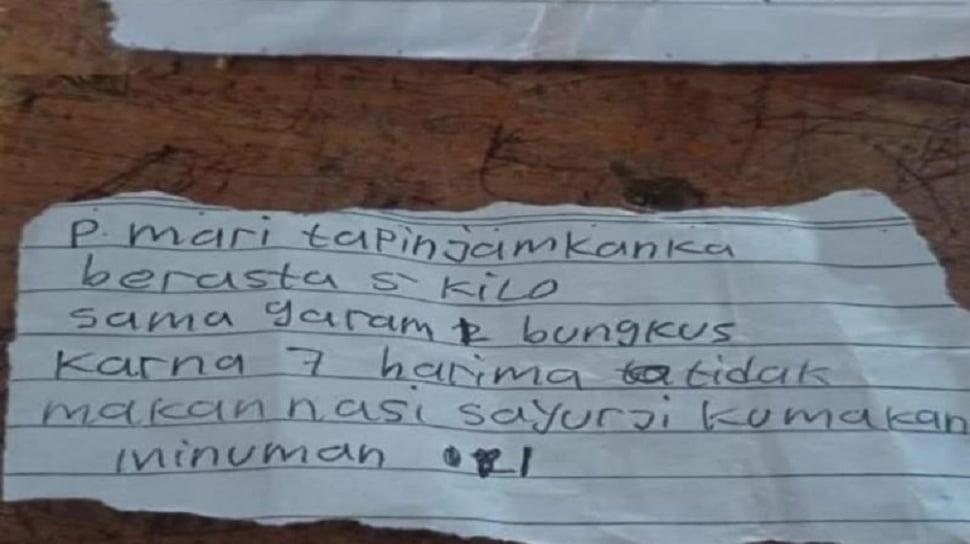 P. mari tapinjamkanka
berasta 5 kilo
sama garam bungkus
karna 7 harima tidak
makan nasi sayurji kumakan
minuman